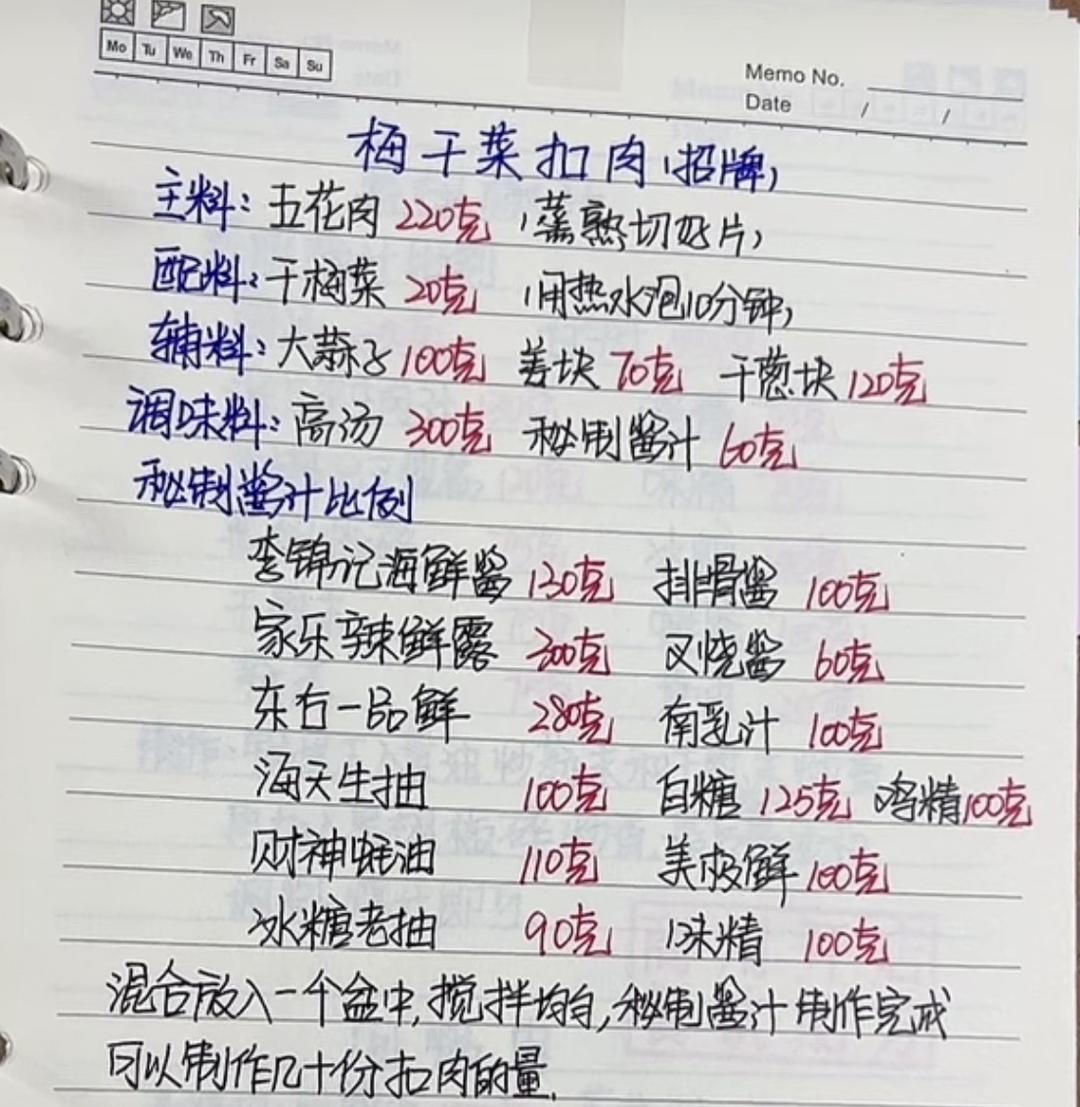 Mo Tu We Th Fr Sa Su
Memo No.
Date / /
梅干菜扣肉(招牌)
主料:五花肉 220克 (蒸熟切好片)
配料:干梅菜 20克 (用热水泡10分钟)
辅料:大蒜子100克 姜块 70克 干葱块120克
调味料:高汤 300克 秘制酱汁 60克
秘制酱汁比例
李锦记海鲜酱 130克 排骨酱 100克
家乐辣鲜露 300克 叉烧酱 60克
东古一品鲜 280克 南乳汁 100克
海天生抽 100克 白糖 125克 鸡精100克
财神蚝油 110克 美极鲜 100克
冰糖老抽 90克 味精 100克
混合放入一个盆中,搅拌均匀,秘制酱汁制作完成
可以制作几十份扣肉的量.